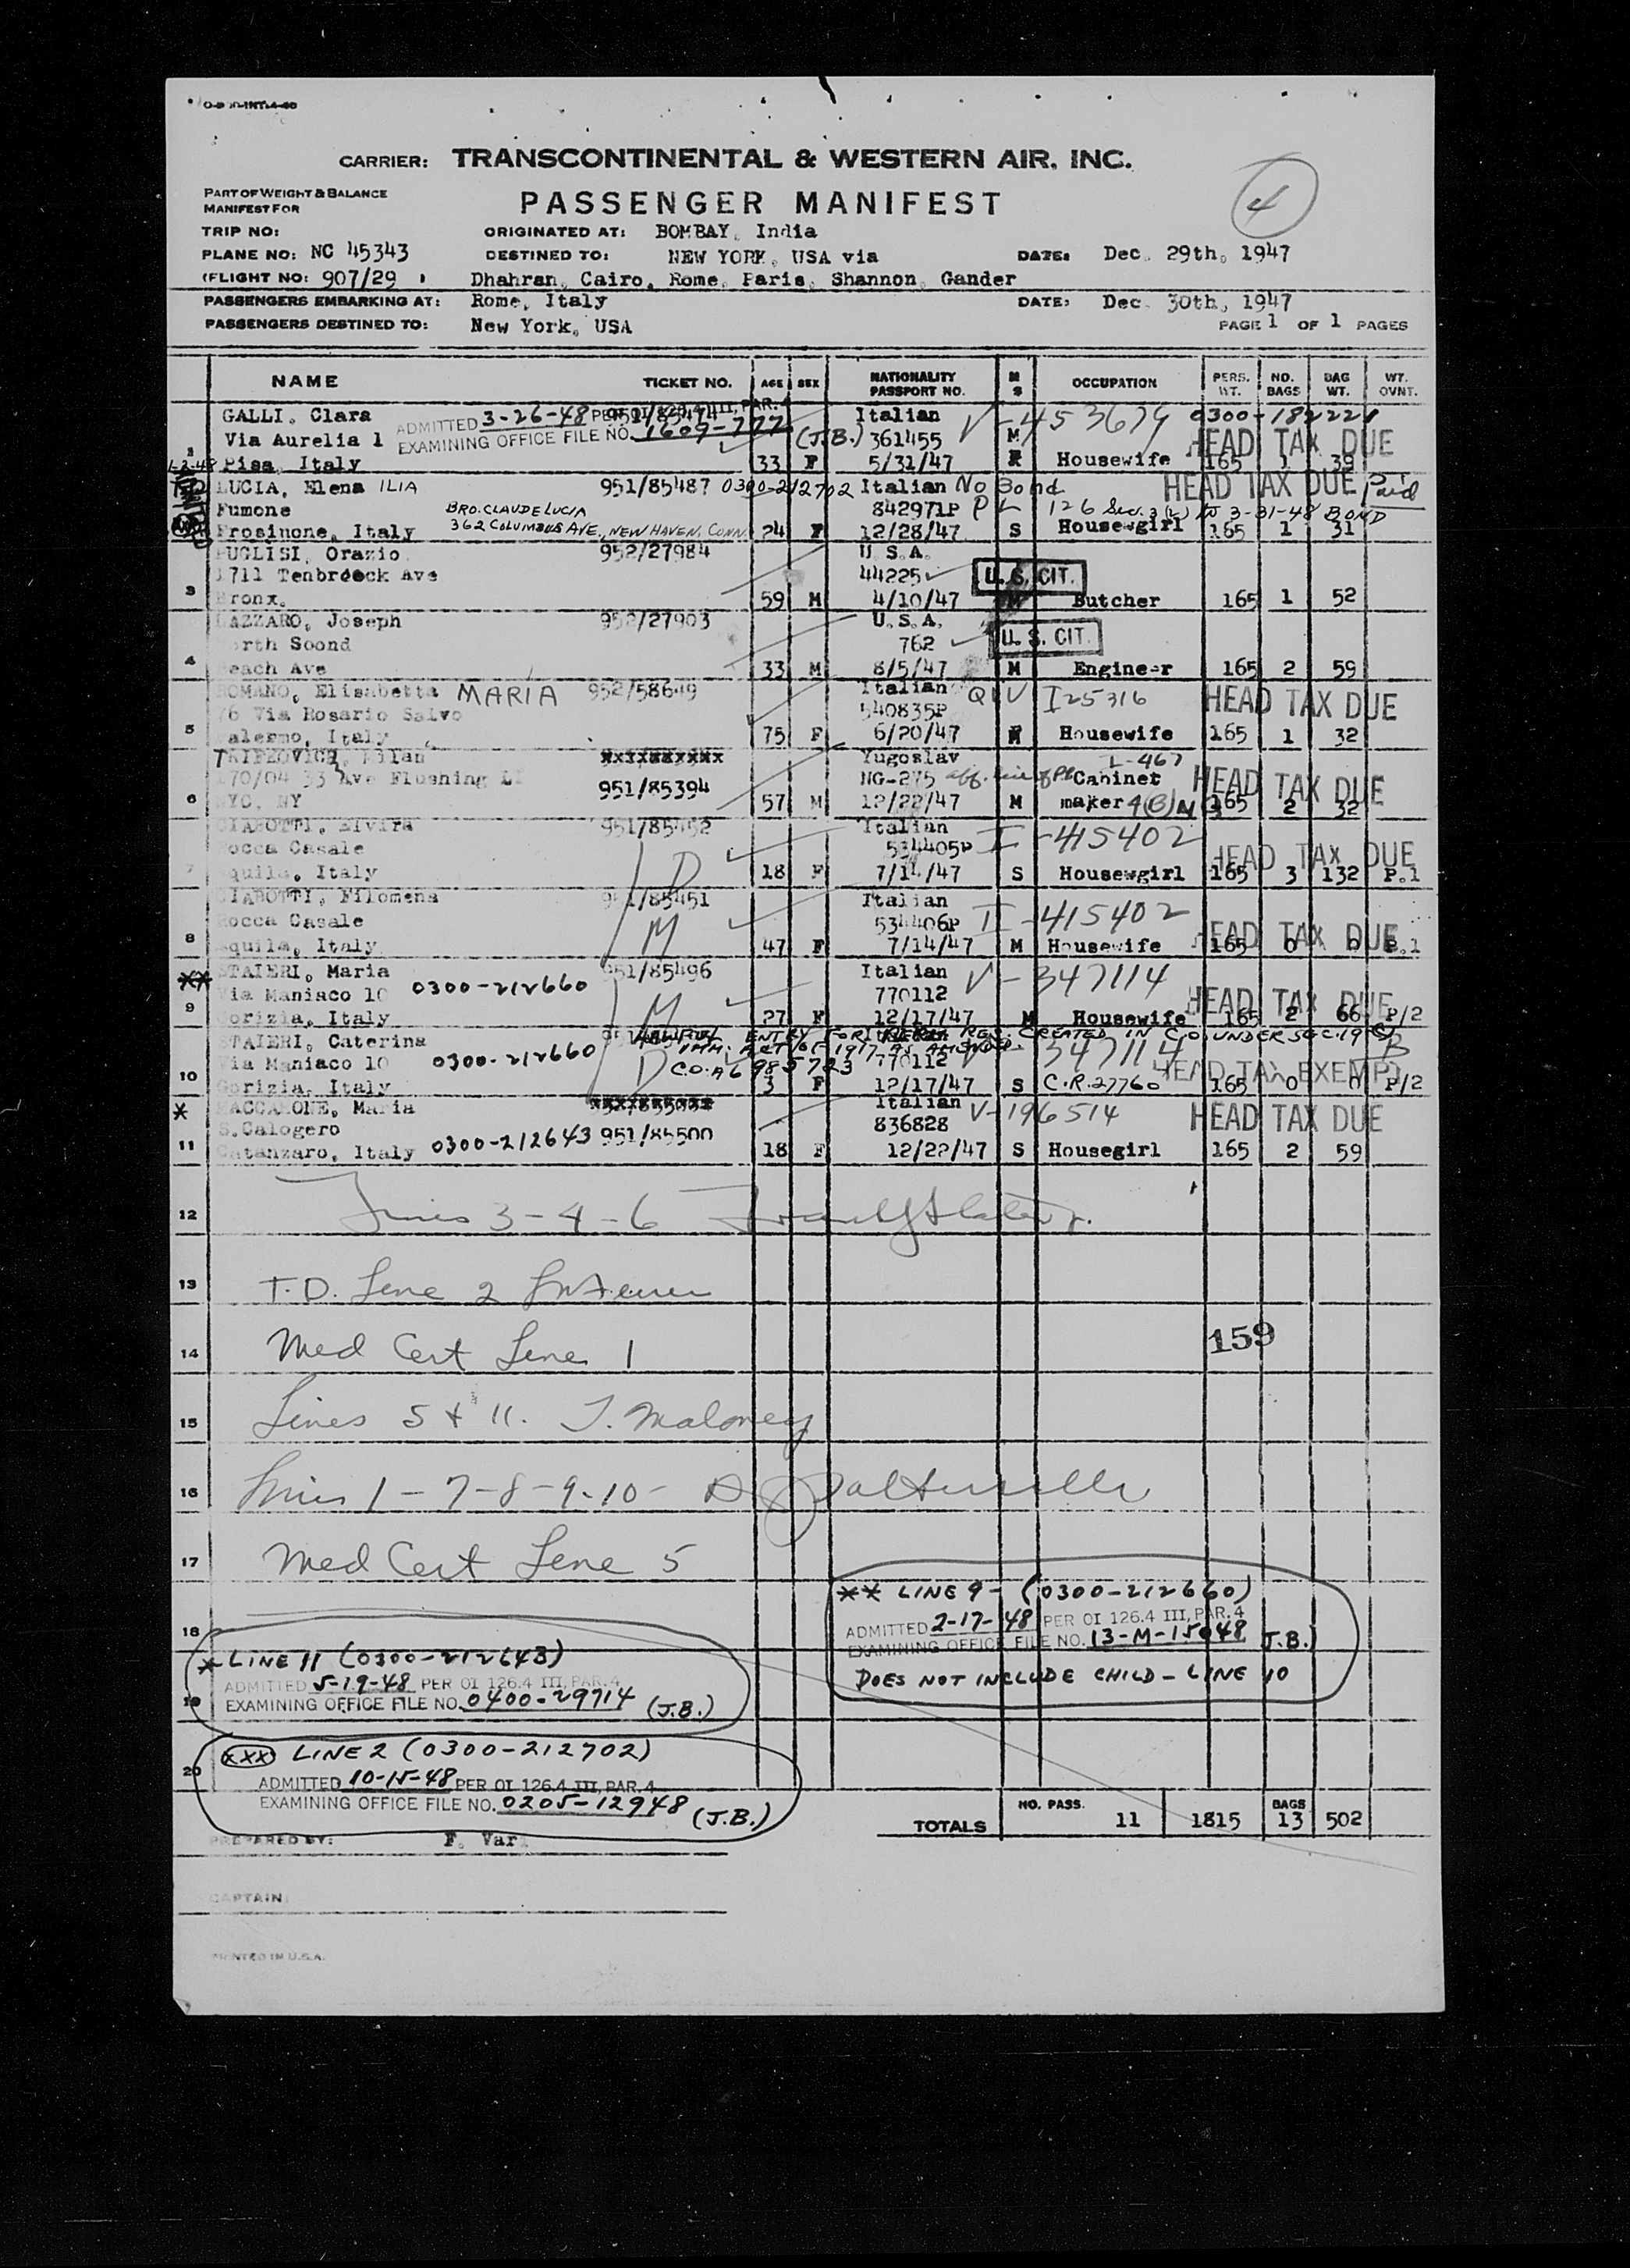 CARRIER: TRANSCONTINENTAL & WESTERN AIR, INC.
PART OF WEIGHT & BALANCE
MANIFEST FOR
PASSENGER MANIFEST
4
TRIP NO:
ORIGINATED AT: BOMBAY, India
PLANE NO: NC 45343
DESTINED TO: NEW YORK, USA via
DATE: Dec. 29th, 1947
(FLIGHT NO: 907/29 )
Dhahran, Cairo, Rome, Paris, Shannon, Gander
PASSENGERS EMBARKING AT: Rome, Italy
DATE: Dec. 30th, 1947
PASSENGERS DESTINED TO: New York, USA
PAGE 1 OF 1 PAGES
NAME TICKET NO. AGE SEX NATIONALITY PASSPORT NO. M S OCCUPATION PERS. WT. NO. BAGS BAG WT. WT. OVNT.
GALLI, Clara Italian V-453674 0300-182221
ADMITTED 3-26-48 PER OI 126.4 III, PAR. 4
Via Aurelia 1 EXAMINING OFFICE FILE NO. 1609-777 (J.B.) 361455 M HEAD TAX DUE
1 Pisa, Italy 33 F 5/31/47 Housewife 165 1 39
LUCIA, Elena ILIA 951/85487 0300-212702 Italian No Bond HEAD TAX DUE Paid
Fumone BRO. CLAUDE LUCIA 842971P PL 126 Sec. 3(2) to 3-31-48 BOND
Frosinone, Italy 362 COLUMBUS AVE., NEW HAVEN, CONN. 24 F 12/28/47 S Housewgirl 165 1 31
PUGLISI, Orazio 952/27984 U.S.A.
1711 Tenbroeck Ave 44225 U.S. CIT.
3 Bronx. 59 M 4/10/47 M Butcher 165 1 52
LAZZARO, Joseph 952/27903 U.S.A.
North Soond 762 U.S. CIT.
4 Beach Ave 33 M 8/5/47 M Engineer 165 2 59
ROMANO, Elisabetta MARIA 952/58649 Italian QIV I25316 HEAD TAX DUE
76 Via Rosario Salvo 540835P
5 Palermo, Italy 75 F 6/20/47 Housewife 165 1 32
TRIPKOVICH, Milan xxxxxxxxxx Yugoslav I-467
170/04 33 Ave Flushing LI 951/85394 NG-275 Cabinet HEAD TAX DUE
6 NYC, NY 57 M 12/22/47 M maker 4(B) 165 2 32
CIABOTTI, Elvira 951/85452 Italian I-415402
Rocca Casale D 534405P HEAD TAX DUE
7 Aquila, Italy 18 F 7/14/47 S Housewgirl 165 3 132 P.1
CIABOTTI, Filomena 951/85451 Italian I-415402
Rocca Casale M 534406P HEAD TAX DUE
8 Aquila, Italy 47 F 7/14/47 M Housewife 165 0 0 P.1
XX STAIERI, Maria 951/85496 Italian V-347114
Via Maniaco 10 0300-212660 M 770112 HEAD TAX DUE
9 Gorizia, Italy 27 F 12/17/47 M Housewife 165 2 66 P/2
STAIERI, Caterina LAWFUL ENTRY FOR PERM. RES. CREATED IN C.O. UNDER SEC. 19(c)
Via Maniaco 10 0300-212660 D IMM. ACT OF 1917 AS AMENDED 770112 V 347114 B
C.O. A6985723
10 Gorizia, Italy 3 F 12/17/47 S C.R. 27760 HEAD TAX EXEMPT 165 0 0 P/2
* MACCARONE, Maria Italian V-196514 HEAD TAX DUE
S.Calogero 836828
11 Catanzaro, Italy 0300-212643 951/85500 18 F 12/22/47 S Housegirl 165 2 59
12 Lines 3-4-6
13 T.D. Line 2
14 Med Cert Line 1
159
15 Lines 5 & 11. J. Maloney
16 Lines 1-7-8-9-10-
17 Med Cert Line 5
** LINE 9 - (0300-212660)
ADMITTED 2-17-48 PER OI 126.4 III, PAR. 4
EXAMINING OFFICE FILE NO. 13-M-15048 J.B.)
DOES NOT INCLUDE CHILD - LINE 10
18
* LINE 11 (0300-212643)
ADMITTED 5-19-48 PER OI 126.4 III, PAR. 4
19 EXAMINING OFFICE FILE NO. 0400-29714 (J.B.)
20 XXX LINE 2 (0300-212702)
ADMITTED 10-15-48 PER OI 126.4 III, PAR. 4
EXAMINING OFFICE FILE NO. 0205-12948 (J.B.)
TOTALS NO. PASS. 11 1815 BAGS 13 502
PREPARED BY: F. Var
CAPTAIN
PRINTED IN U.S.A.